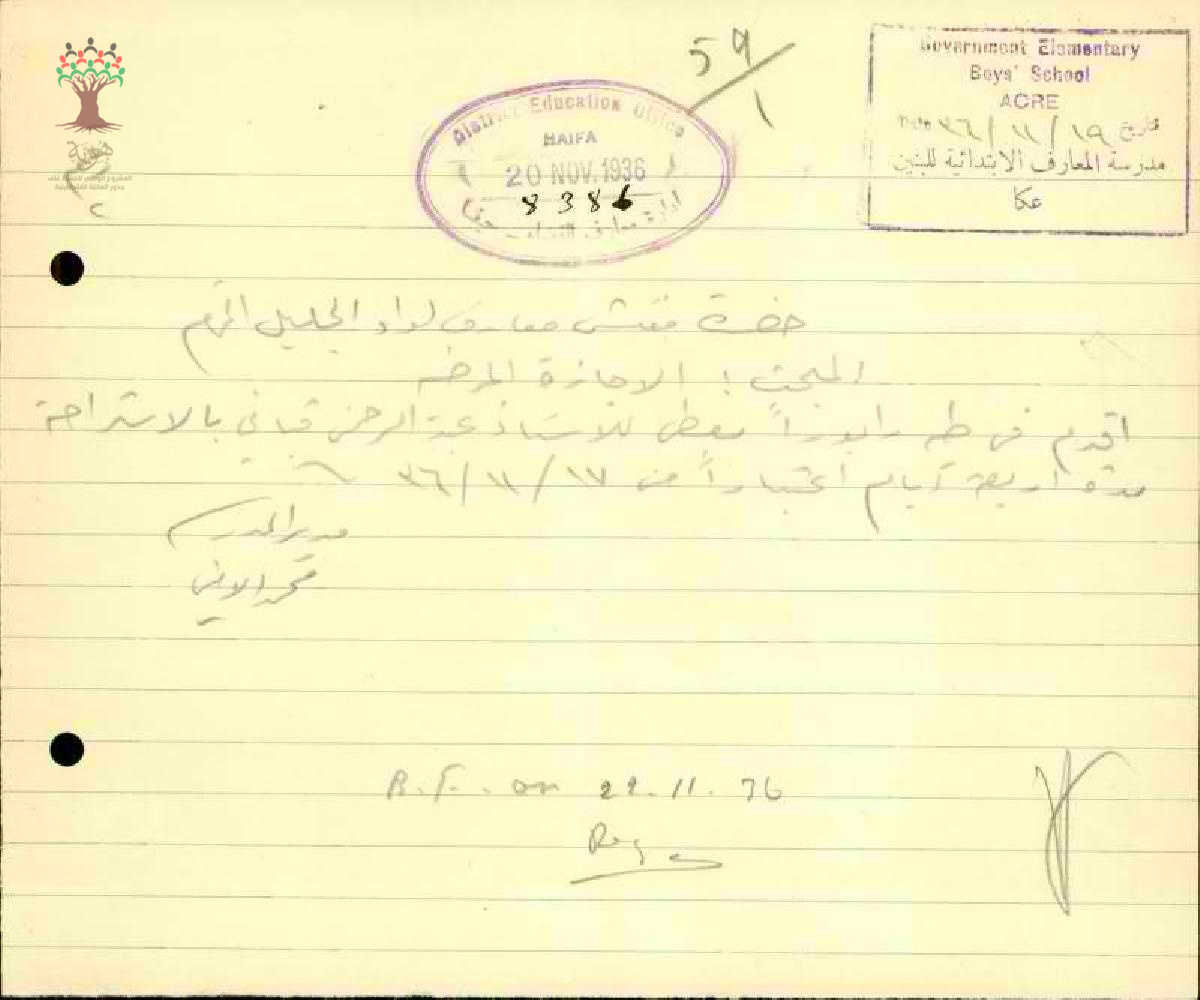 59/1
Government Elementary
Boys' School
ACRE
Date ٣٦/١١/١٩ تاريخ
مدرسة المعارف الابتدائية للبنين
عكا
District Education Office
HAIFA
20 NOV. 1936
8386
ادارة معارف اللواء حيفا
هوية
المشروع الوطني للحفاظ على
جذور العائلة الفلسطينية
حضرة مفتش معارف لواء الجليل المحترم
المبحث : الاجازة المرضية
اقدم في طيه رابوراً يعطى للاستاذ عبد الرحمن قباني بالاستراحة
مدة اربعة أيام اعتباراً من ٣٦/١١/١٧
مدير المدرسة
B.F. on 22.11.36